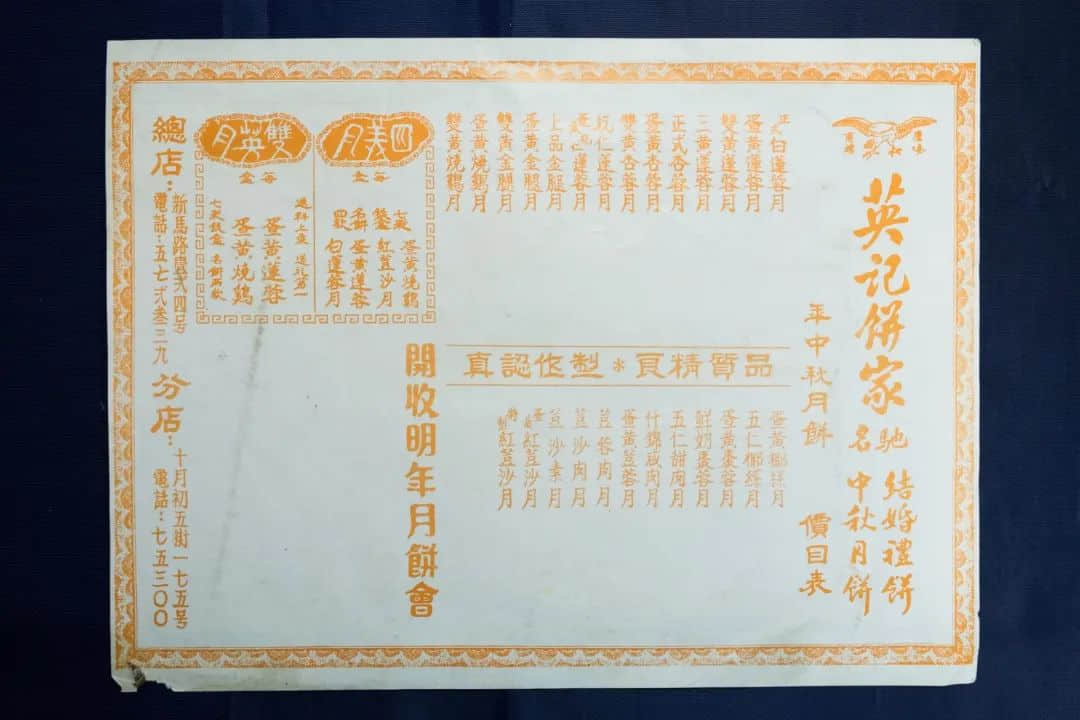 英記餅家
馳名
結婚禮餅
中秋月餅
年中秋月餅
價目表
白蓮蓉月
蛋黃蓮蓉月
雙黃蓮蓉月
三黃蓮蓉月
正式杏蓉月
蛋黃杏蓉月
雙黃杏蓉月
杬仁蓮蓉月
蓮蓉月
上品金腿月
蛋黃金腿月
雙黃金腿月
蛋黃燒鷄月
雙黃燒鷄月
品質精良*製作認真
蛋黃椰絲月
五仁椰絲月
蛋黃棗蓉月
鮮奶棗蓉月
五仁甜肉月
什錦咸肉月
蛋黃荳蓉月
荳蓉肉月
荳沙肉月
荳沙素月
蛋黃紅荳沙月
特制紅荳沙月
四義月
每盒
七彩鐵盒
名餅四款
蛋黃燒鷄
紅荳沙月
蛋黃蓮蓉
白蓮蓉月
雙英月
每盒
選料上乘 送礼第一
蛋黃蓮蓉
蛋黃燒鷄
七彩鐵盒 名餅兩款
開收明年月餅會
總店：新馬路壹弍四号
電話：五七弍叁三九
分店：十月初五街一七五号
電話：七五三〇〇